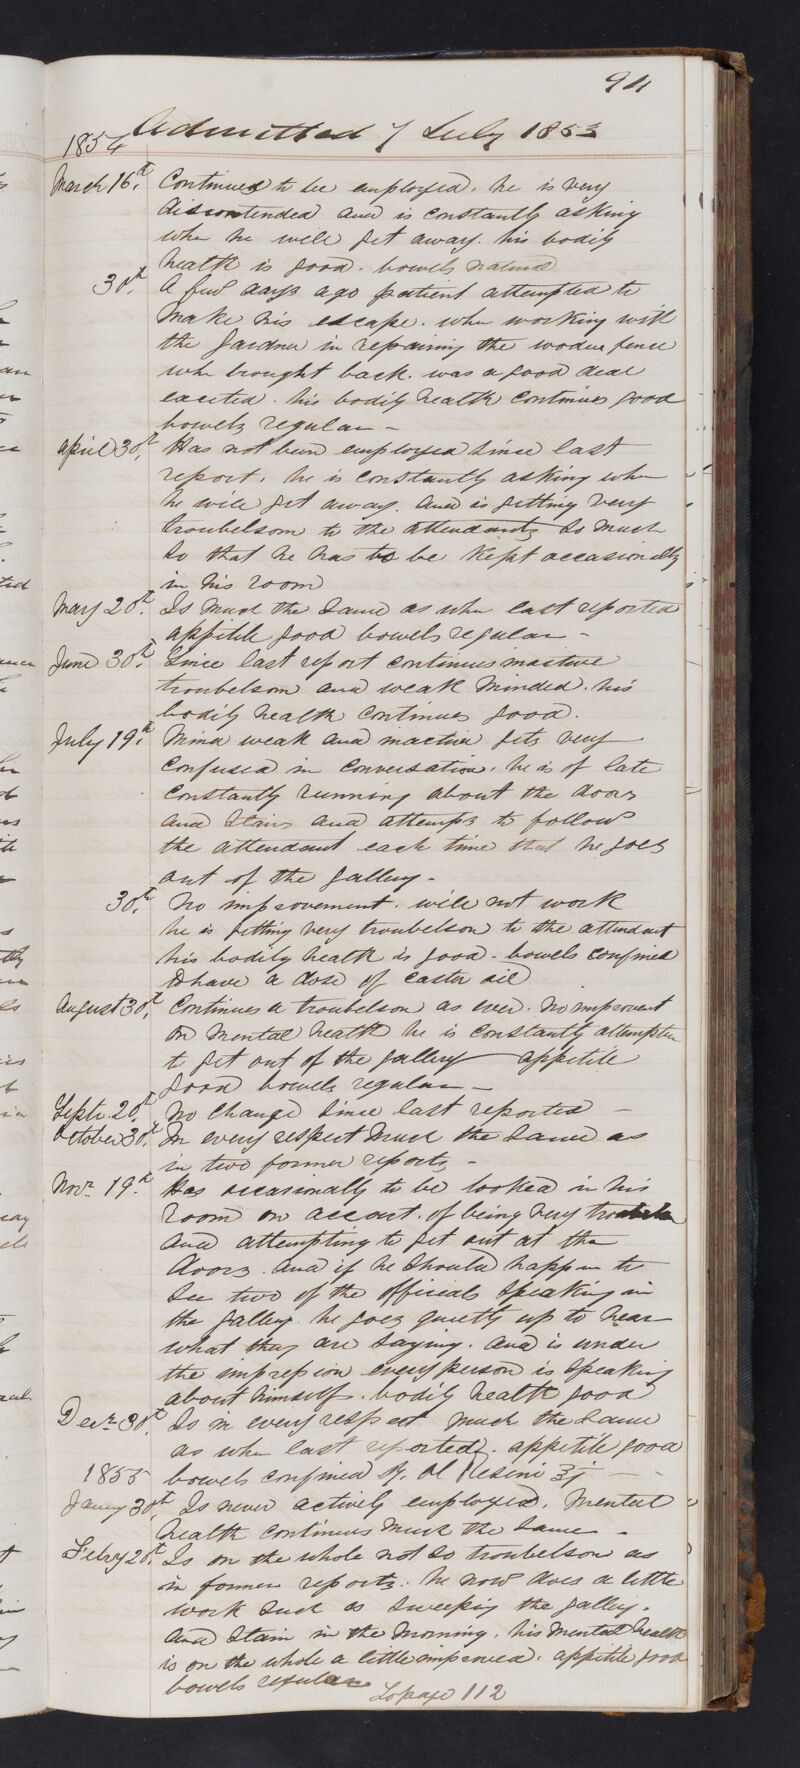 94
Admitted 7 July 1853
1854
March 16th. Continues to be employed. he is very
discontended and is constantly asking
when he will get away. his bodily
health is good. bowels natural
30th. A few days ago patient attempted to
make his escape. when working with
the gardner in repairing the wooden fence
when brought back. was a good deal
excited. his bodily health continues good
bowels regular –
April 30th. Has not been employed since last
report. he is constantly asking when
he will get away. and is getting very
troubelsom to the attendants so much
so that he has to be kept occasionally
in his room
May 20th. Is much the same as when last reported
appitite good bowels regular –
June 30th. Since last report continues inactive
troubelsom and weak minded. his
bodily health continues good.
July 19th. Mind weak and inactive gets very
confused in conversation. he is of late
constantly running about the doors
and stairs and attemps to follow
the attendant each time that he goes
out of the gallery.
30th. No improvement. will not work
he is getting very troubelsom to the attendant
his bodily health is good – bowels confined
to have a dose of castor oil
August 30th. Continues a troubelsom as ever. No improvent
on mental health he is constantly attempten
to get out of the gallery appitite
good bowels regular –
Septr. 20th. No change since last reported –
October 30th. In every respect much the same as
in two former reports –
Novr. 19th. Has occasionally to be locked in his
room on account. of being very
and attempting to get out at the
doors. and if he should happen to
see two of the officials speaking in
the gallery. he goes quietly up to hear
what they are saying. and is under
the impression every person is speaking
about himself. bodily health good
Decr. 30th. Is in every respect much the same
as when last reported. appitite good
1855 bowels confined ℞. Ol Resini ʒj – –
Janury 30th. Is never actively employed. mental
health continues much the same –
Febry 20th. Is on the whole not so troubelsom as
in former reports. he now does a little
work such as sweeping the galley.
and stair in the morning. his mental health
is on the whole a little improved. appitite good
bowels regular
To page 112